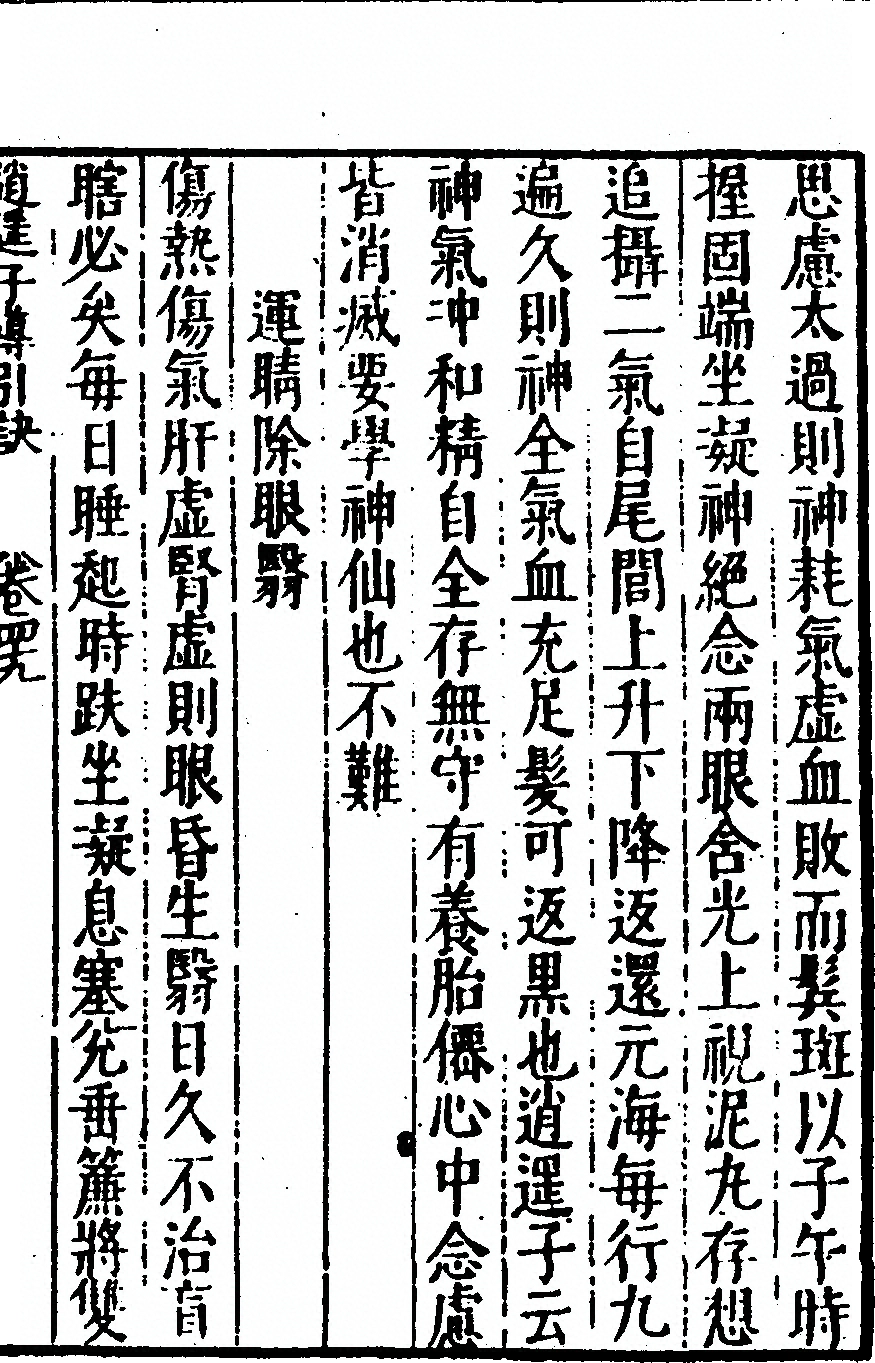 思慮太過則神耗氣虛血敗而鬓斑以子午時
握固端坐凝神絕念兩眼含光上視泥丸存想
追攝二氣自尾閭上升下降返還元海每行九
遍久則神全氣血充足髮可返黒也逍遥子云
神氣冲和精自全存無守有養胎僊心中念慮
皆消滅要學神仙也不難
運睛除眼翳
傷熱傷氣肝虛腎虛則眼昏生翳日久不治盲
瞎必矣毎日睡起時趺坐凝息塞兊垂簾將雙
逍遥子導引訣 卷四九